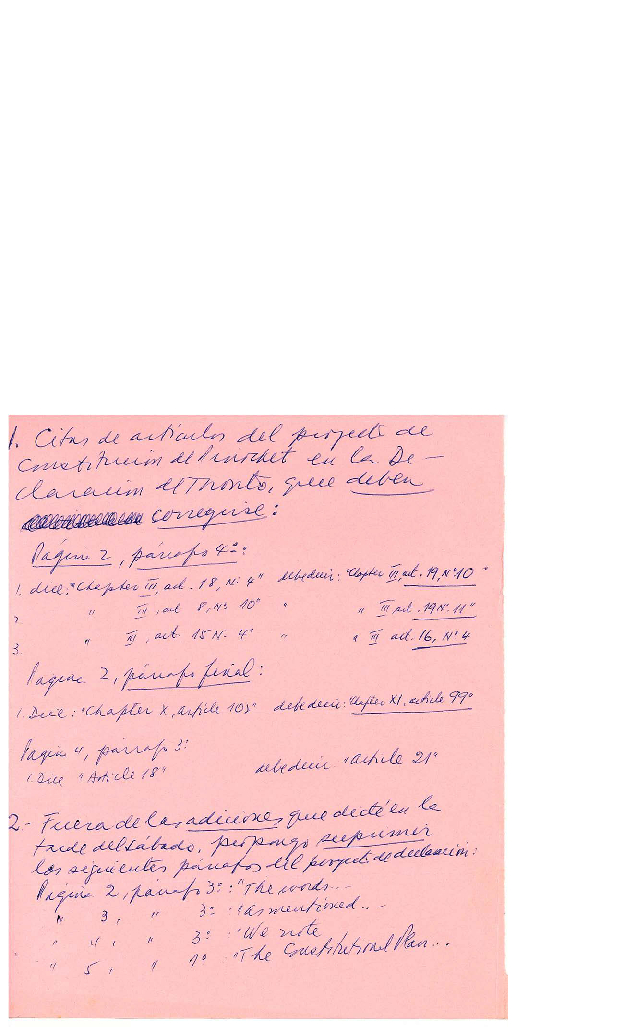 1. Citas de artículos del proyecto de
Constitución de Pinochet en la De-
claración de Toronto, que deben
corregirse:
Página 2, párrafo 4º:
1. dice: "Chapter III, art. 18, Nº 4" debe decir: "Chapter III, art. 19, Nº 10"
2. " III, art 8, Nº 10" " " III art. 19 Nº 11"
3. " III, art. 15 Nº 4" " " III art. 16, Nº 4
Pagina 2, párrafo final:
1. Dice: "Chapter X, article 103" debe decir: "Chapter XI, article 99"
Pagina 4, párrafo 3º
1. Dice "Article 18" debe decir "article 21"
2- Fuera de las adiciones que dicté en la
tarde del sábado, propongo suprimir
los siguientes párrafos del proyecto de declaración:
Pagina 2, párrafo 3º: "The words...
" 3, " 3º "as mentioned...
" 4, " 3º "We note
" 5, " 1º "The Constitutional Plan...